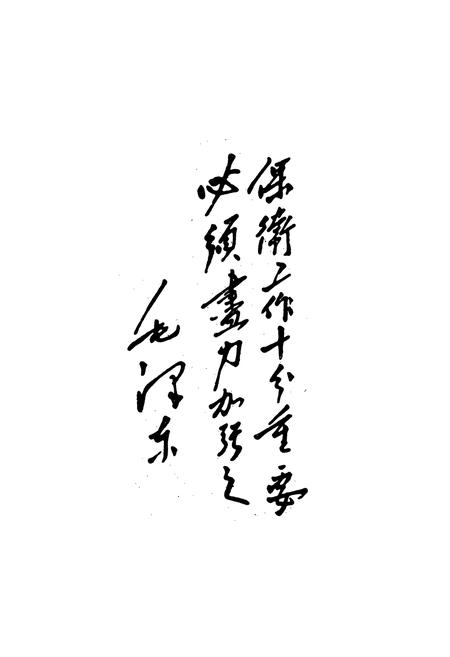 保衛工作十分重要
必須盡力加强之
毛泽东